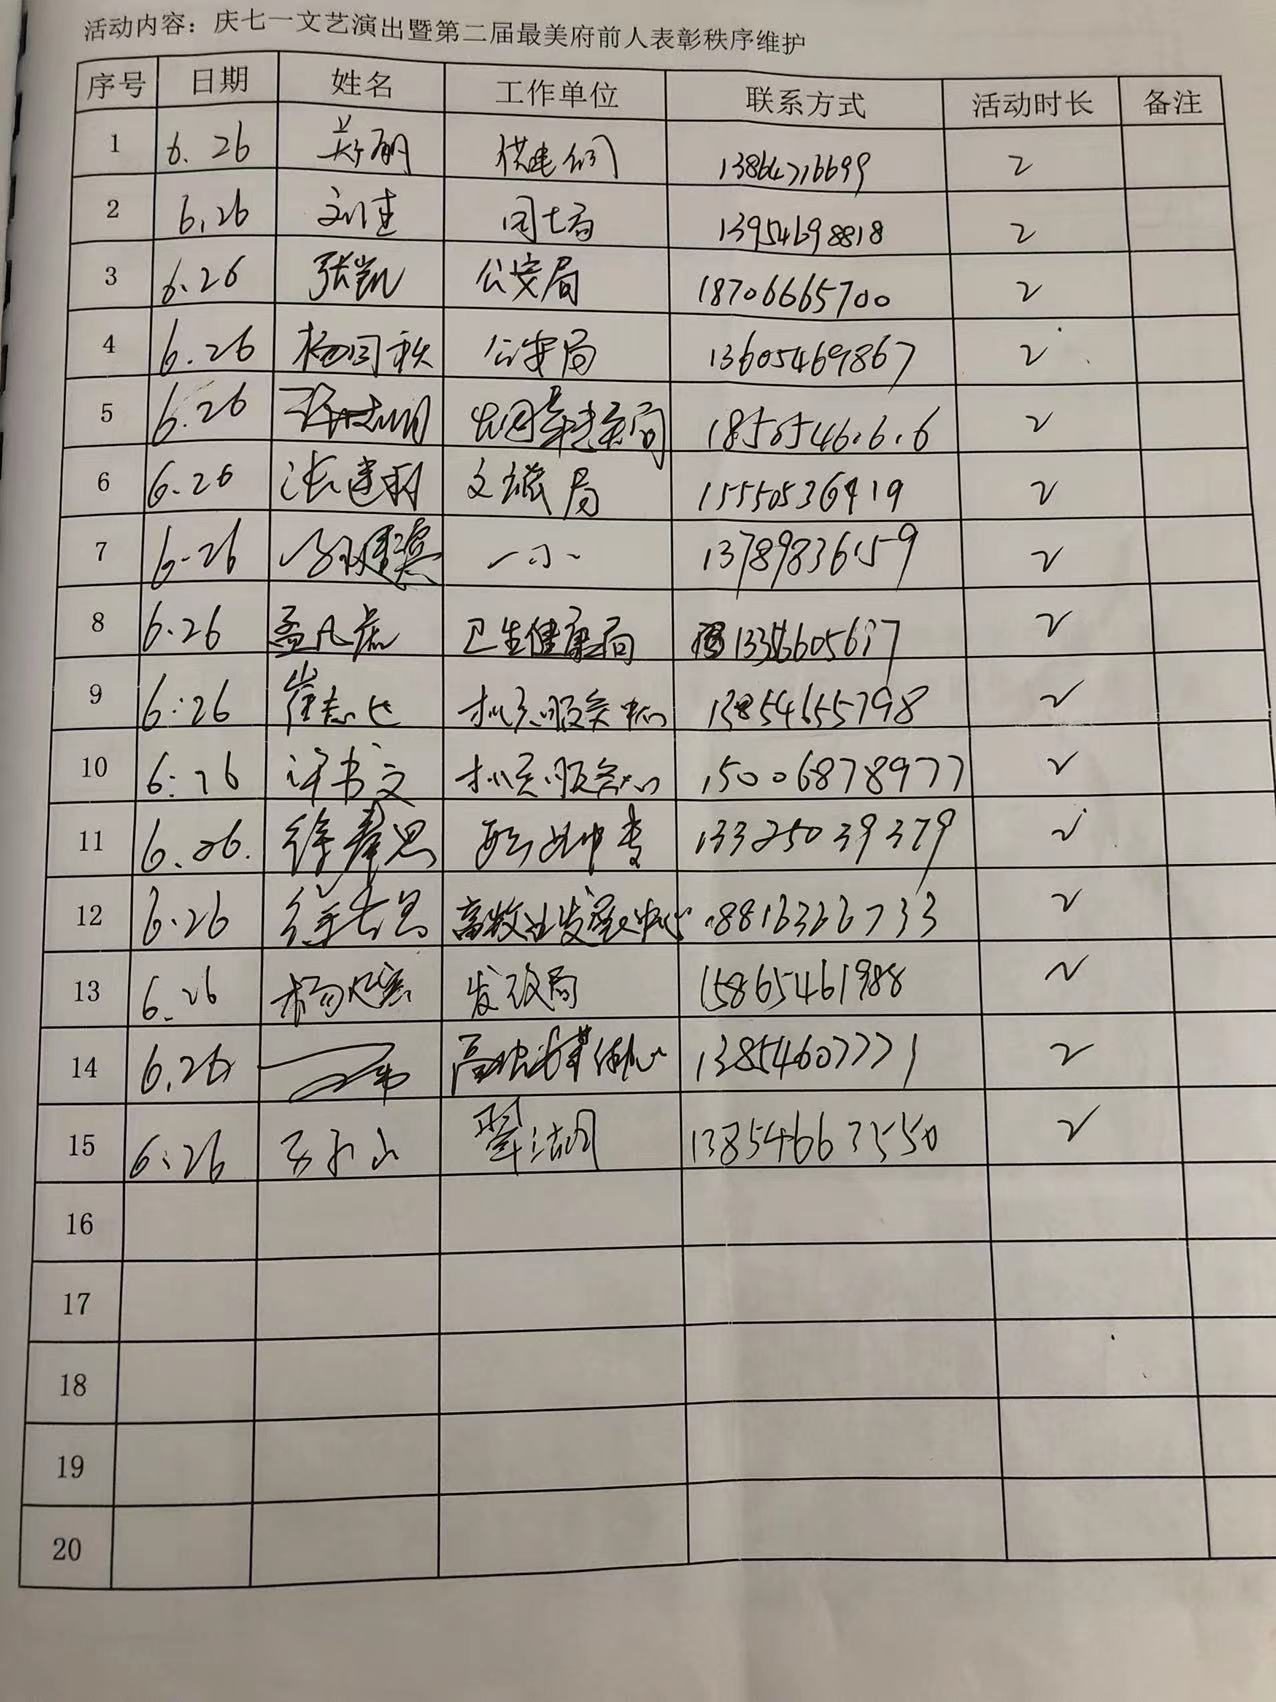 活动内容：庆七一文艺演出暨第二届最美府前人表彰秩序维护
序号 日期 姓名 工作单位 联系方式 活动时长 备注
1 6.26 供电公司 13864716699 2
2 6.26 刘佳 国土局 13954698818 2
3 6.26 张凯 公安局 18706665700 2
4 6.26 杨国秋 公安局 13605469867 2
5 6.26 2
6 6.26 张建 文旅局 15550536919 2
7 6.26 一小 13789836159 2
8 6.26 孟凡虎 卫生健康局 2
9 6:26 崔志 机关服务中心 13854655798 2
10 6:26 许书文 机关服务中心 15006878977 2
11 6.26. 徐 中专 13325039379 2
12 6.26 徐 发展中心 18816366733 2
13 6.26 杨 发改局 15865461988 2
14 6.26 13854607771 2
15 6.26 翠湖 2
16
17
18
19
20